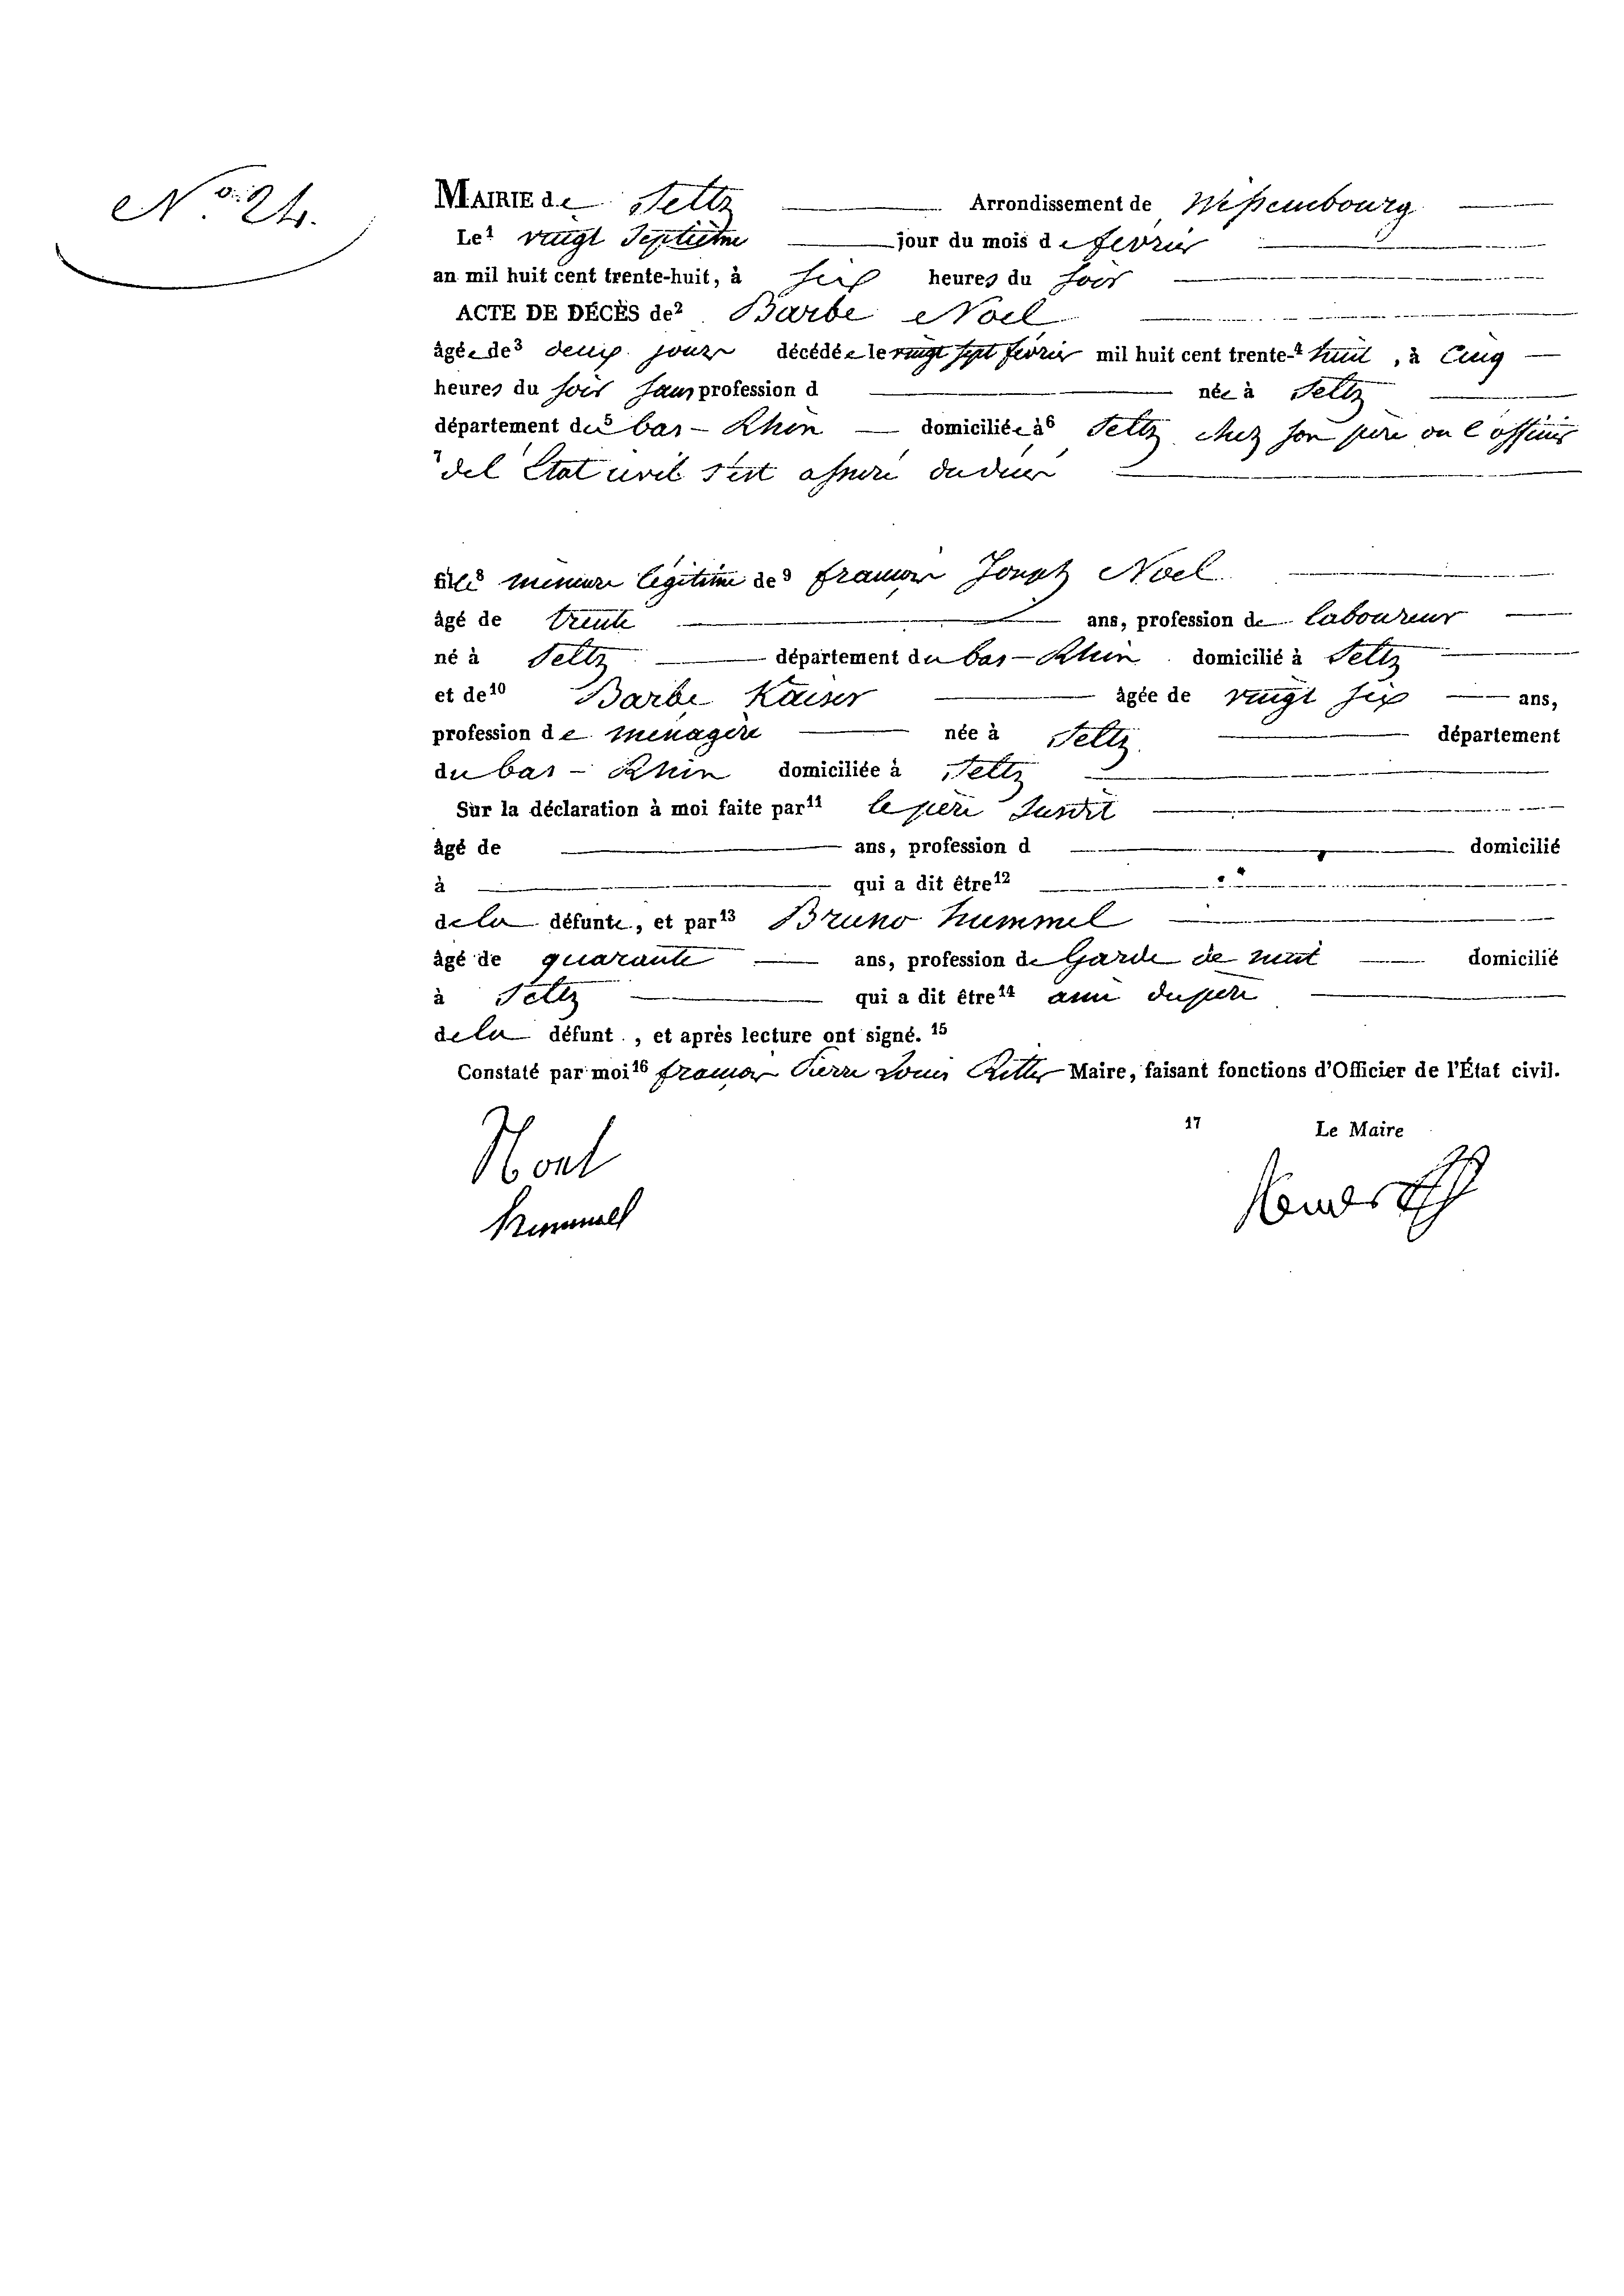 No. 24.
MAIRIE de Seltz Arrondissement de Wissembourg
Le1 vingt Septième jour du mois de février
an mil huit cent trente-huit, à six heures du soir
ACTE DE DÉCÈS de2 Barbe Noel
âgée de3 deux jours décédée le vingt sept février mil huit cent trente-4 huit, à Cinq
heures du soir sans profession d née à Seltz
département du5 bas-Rhin domiciliée à6 Seltz chez son père ou l'officier
7 del'État civil s'est assuré du décès
fille8 mineure légitime de9 françois Noel
âgé de trente ans, profession de laboureur
né à Seltz département du bas-Rhin domicilié à Seltz
et de10 Barbe Kaiser âgée de vingt six ans,
profession de ménagère née à Seltz département
du bas-Rhin domiciliée à Seltz
Sur la déclaration à moi faite par11 le père Susdit
âgé de ans, profession d domicilié
à qui a dit être12
dela défunte, et par13 Bruno hummel
âgé de quarante ans, profession de Garde de nuit domicilié
à Seltz qui a dit être14 ami du père
dela défunt , et après lecture ont signé. 15
Constaté par moi16 françois Pierre Louis Ritter Maire, faisant fonctions d'Officier de l'État civil.
17 Le Maire
Noel
hummel